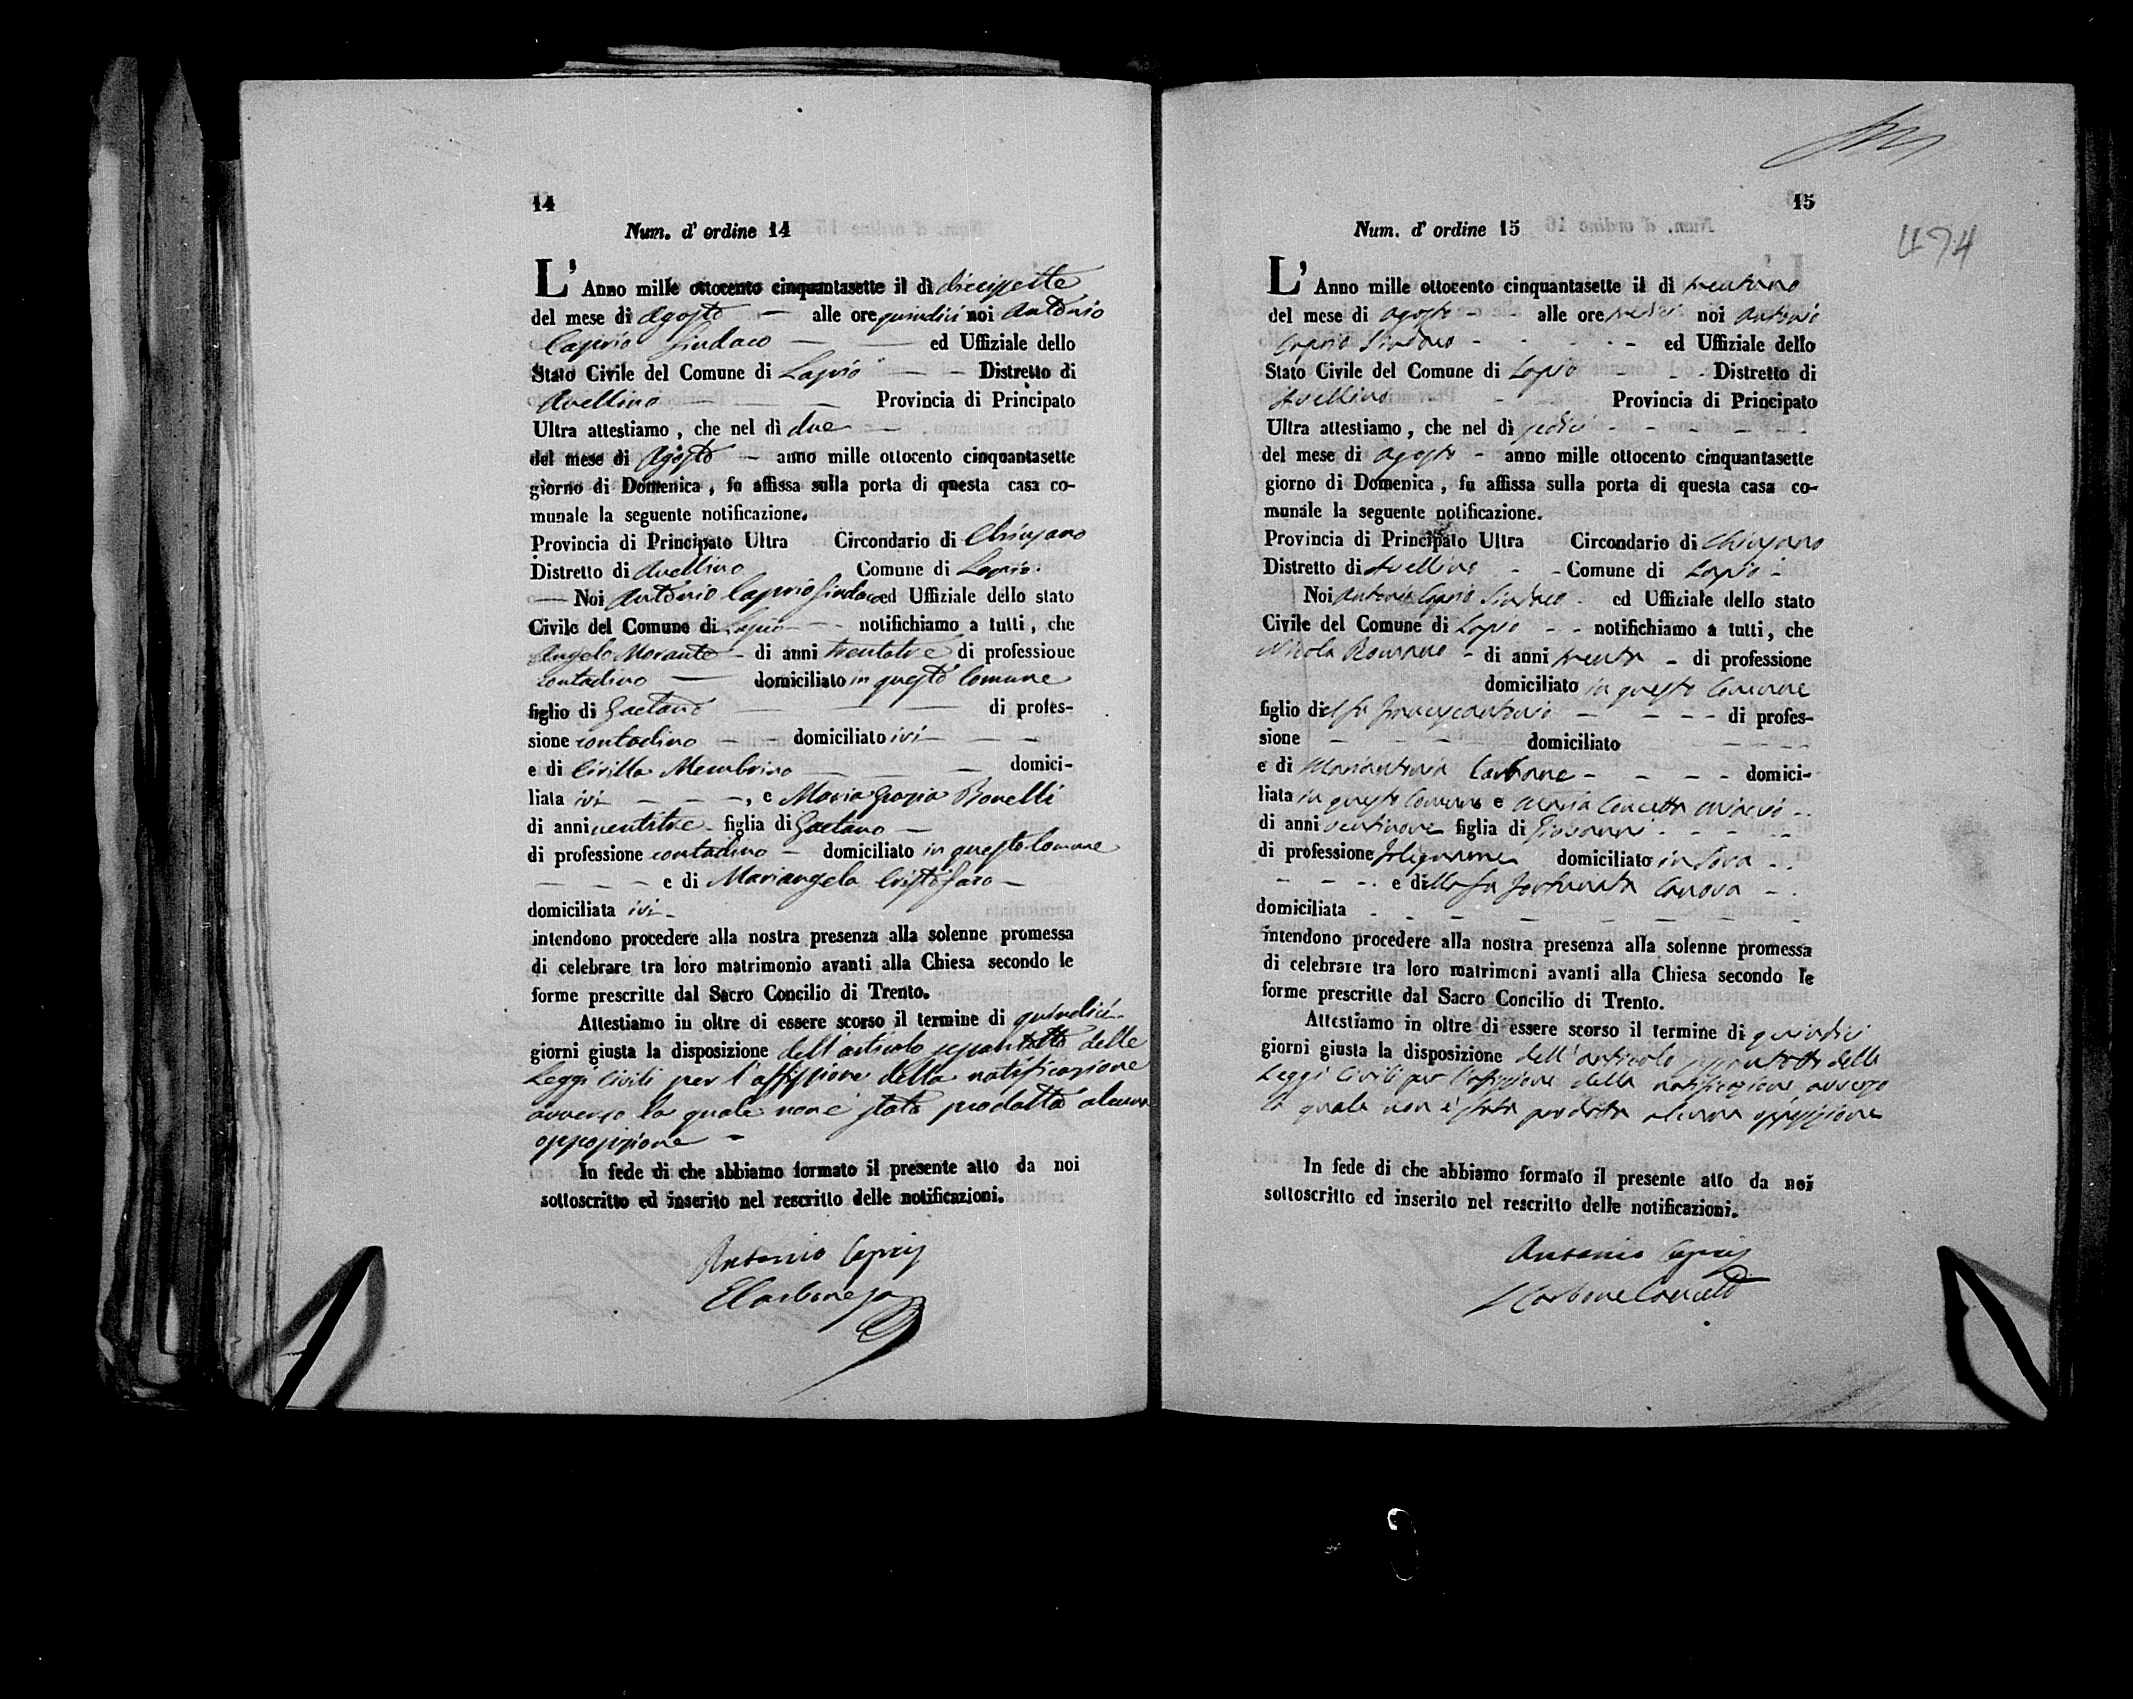 14
Num. d' ordine 14
L' Anno mille ottocento cinquantasette il dì diecissette
del mese di Agosto — alle ore quindici noi Antonio
Caprio Sindaco — — ed Uffiziale dello
Stato Civile del Comune di Lapio — — Distretto di
Avellino — — — Provincia di Principato
Ultra attestiamo , che nel dì due —
del mese di Agosto — anno mille ottocento cinquantasette
giorno di Domenica , fu affissa sulla porta di questa casa co-
munale la seguente notificazione.
Provincia di Principato Ultra Circondario di Chiusano
Distretto di Avellino Comune di Lapio.
— Noi Antonio Caprio Sindaco ed Uffiziale dello stato
Civile del Comune di Lapio — - notifichiamo a tutti , che
Angelo Morante - di anni trentatre di professione
contadino — domiciliato in questo Comune
figlio di Gaetano — — — di profes-
sione contadino — — domiciliato ivi — — —
e di Cirilla Membrino — — — domici-
liata ivi — — — , e Maria Grazia Bonelli
di anni ventitre - figlia di Gaetano —
di professione contadino — domiciliato in questo Comune
— — — e di Mariangela Cristofaro —
domiciliata ivi -
intendono procedere alla nostra presenza alla solenne promessa
di celebrare tra loro matrimonio avanti alla Chiesa secondo le
forme prescritte dal Sacro Concilio di Trento.
Attestiamo in oltre di essere scorso il termine di quindici
giorni giusta la disposizione dell'articolo sessantotto delle
Leggi Civili per l'affissione della notificazione
avverso la quale non è stata prodotta alcuna
opposizione -
In fede di che abbiamo formato il presente atto da noi
sottoscritto ed inserito nel rescritto delle notificazioni.
Antonio Caprio
15
494
Num. d' ordine 15
L' Anno mille ottocento cinquantasette il dì trentuno
del mese di agosto - - alle ore noi Antonio
Caprio Sindaco - - - - - ed Uffiziale dello
Stato Civile del Comune di Lapio - - - Distretto di
Avellino - - Provincia di Principato
Ultra attestiamo , che nel dì sedici - - - - -
del mese di agosto - anno mille ottocento cinquantasette
giorno di Domenica , fu affissa sulla porta di questa casa co-
munale la seguente notificazione.
Provincia di Principato Ultra Circondario di Chiusano
Distretto di Avellino - - Comune di Lapio -
Noi Antonio Caprio Sindaco - ed Uffiziale dello stato
Civile del Comune di Lapio - - notifichiamo a tutti , che
Nicola Romano - di anni trenta - di professione
domiciliato in questo Comune
figlio del fu Francescantonio - - - - di profes-
sione - - - - domiciliato - - - -
e di Mariantonia Carbone - - - - domici-
liata in questo Comune e Maria Concetta
di anni ventinove figlia di Giovanni - - - -
di professione falegname domiciliato in - -
- - - - e della fu Fortunata Canova - -
domiciliata - - - - - - - -
intendono procedere alla nostra presenza alla solenne promessa
di celebrare tra loro matrimoni avanti alla Chiesa secondo le
forme prescritte dal Sacro Concilio di Trento.
Attestiamo in oltre di essere scorso il termine di quindici
giorni giusta la disposizione dell'articolo sessantotto delle
Leggi Civili per l'affissione della notificazione avverso
la quale non è stata prodotta alcuna opposizione
In fede di che abbiamo formato il presente atto da noi
sottoscritto ed inserito nel rescritto delle notificazioni.
Antonio Caprio